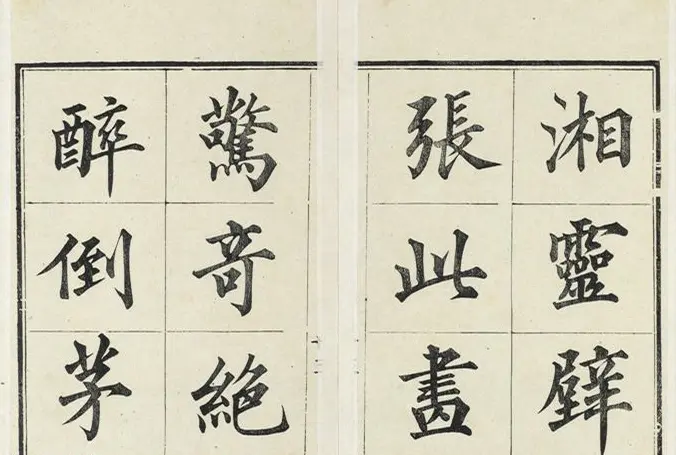 湘靈壁
張此畵
驚奇絕
醉倒茅